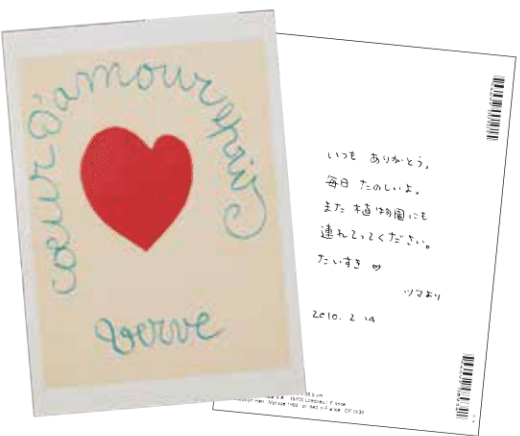 cœur d'amour épris
verve
いつも ありがとう。
毎日 たのしいよ。
また 植物園にも
連れてってください。
だいすき ♡
ツマより
2010. 2 14